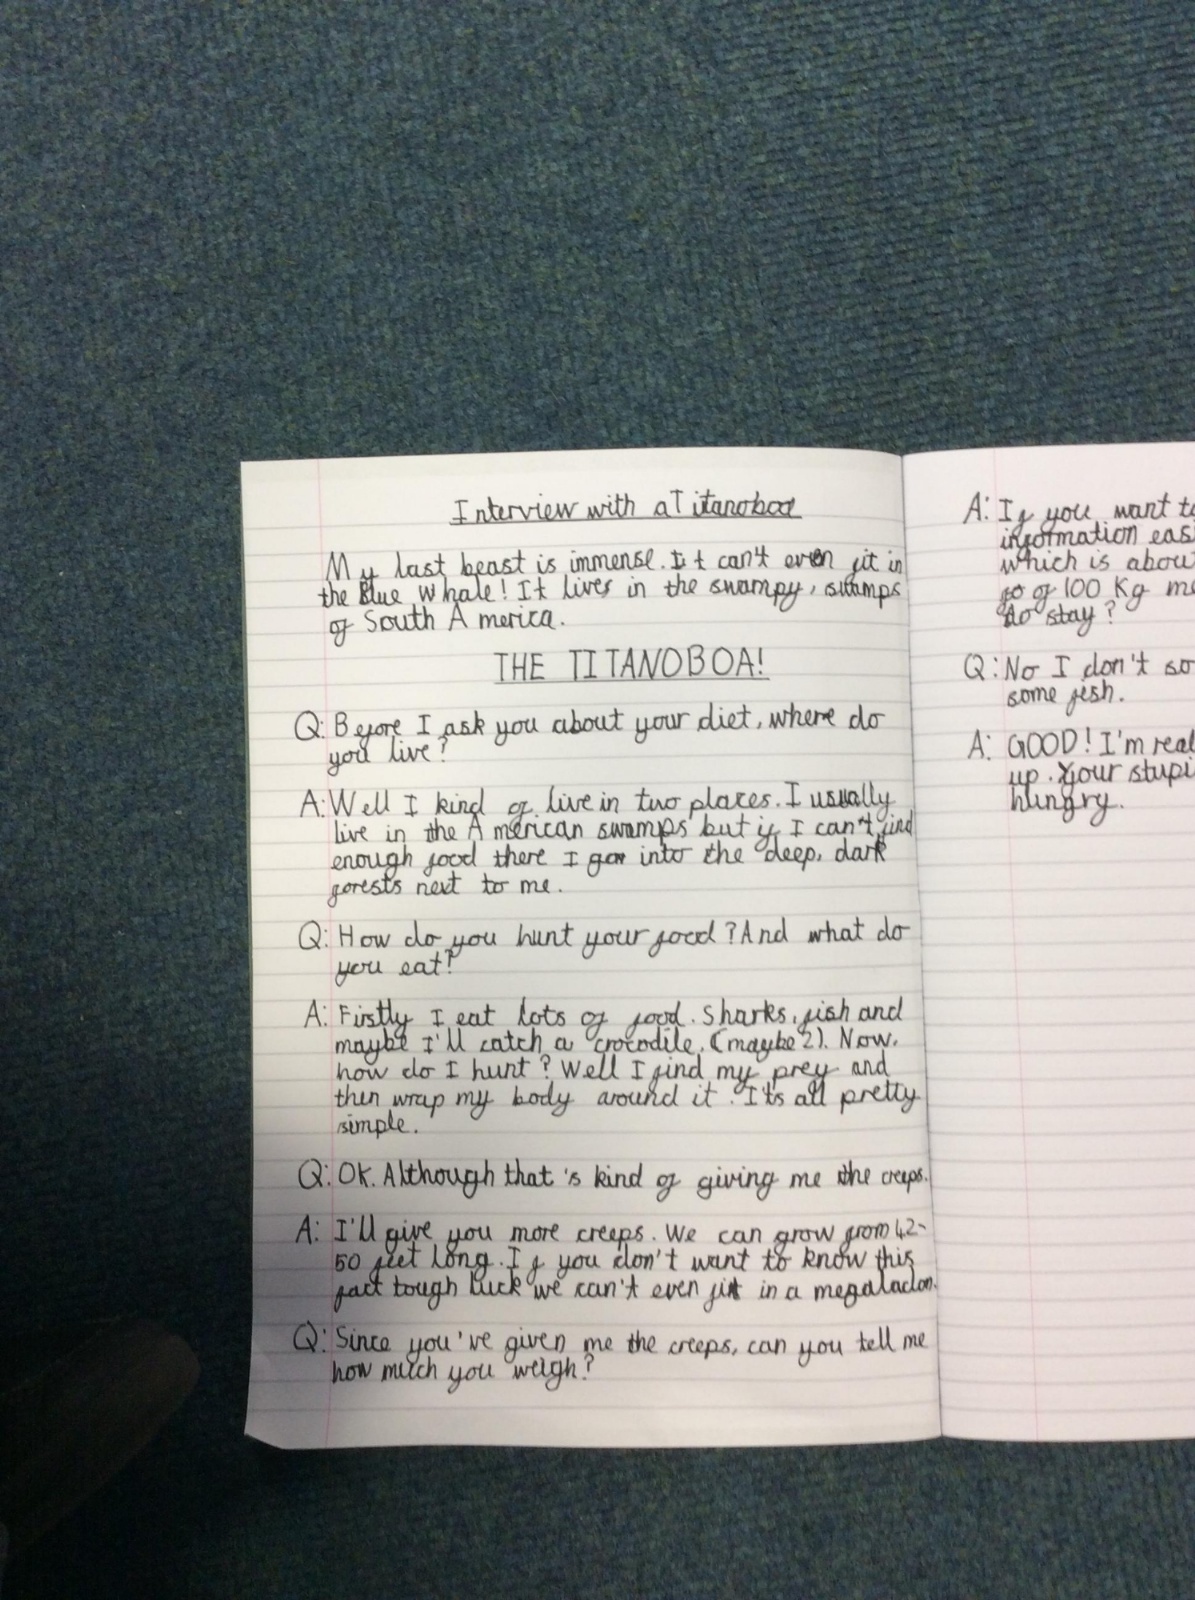 Interview with a Titanoboa
My last beast is immense. It can't even fit in
the Blue Whale! It lives in the swampy, swamps
of South America.
THE TITANOBOA!
Q: Before I ask you about your diet, where do
you live?
A: Well I kind of live in two places. I usually
live in the American swamps but if I can't find
enough food there I go into the deep, dark
forests next to me.
Q: How do you hunt your food? And what do
you eat?
A: Firstly I eat lots of food. Sharks, fish and
maybe I'll catch a crocodile, (maybe 2). Now,
how do I hunt? Well I find my prey and
then wrap my body around it. It's all pretty
simple.
Q: OK. Although that's kind of giving me the creeps.
A: I'll give you more creeps. We can grow from 42-
50 feet long. If you don't want to know this
fact tough luck we can't even fit in a megaladon.
Q: Since you've given me the creeps, can you tell me
how much you weigh?
A: If you want to
information
which is
go of 100 Kg
do stay?
Q: No I don't so
some fesh.
A: GOOD! I'm
up. your
hungry.